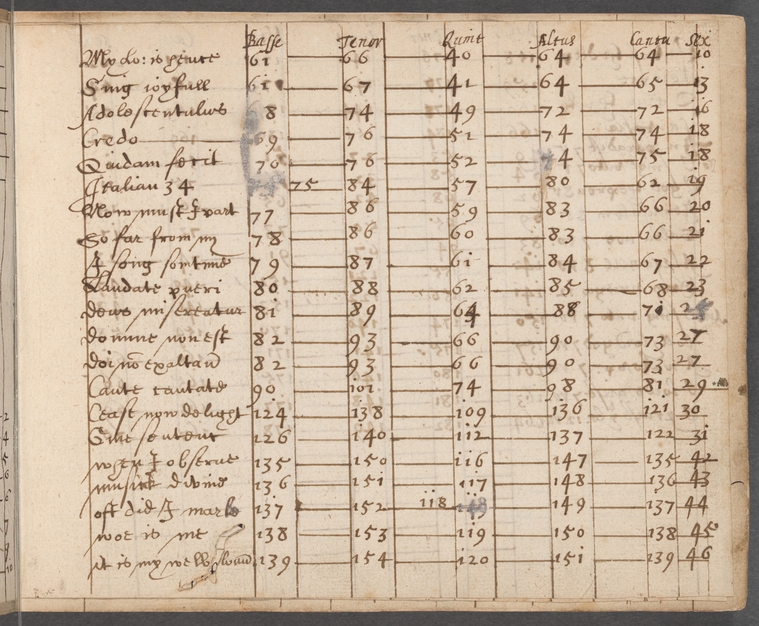 Basse Tenor Quint Altus Cantu Sex
My do: is pence 61 66 40 64 64 10
Sing ioyfull 61 67 41 64 65 13
Adolescentulus 68 74 49 72 72 16
Credo 69 76 51 74 74 18
Quidam fecit 70 76 52 74 75 18
Italian 34 75 84 57 80 62 19
Now must I part 77 86 59 83 66 20
So far from my 78 86 60 83 66 21
A song somtime 79 87 61 84 67 22
Laudate pueri 80 88 62 85 68 23
deus misereatur 81 89 64 88 71
domine non est 82 93 66 90 73 27
doi no exaltau 82 93 66 90 73 27
Caute cantate 90 101 74 98 81 29
Cease now delight 124 138 109 136 121 30
Giue sentenc 126 140 112 137 122 31
when I obserue 135 150 116 147 135 42
musick diuine 136 151 117 148 136 43
oft did I marle 137 152 118 149 137 44
woe is me 138 153 119 150 138 45
it is my welbeloued 139 154 120 151 139 46